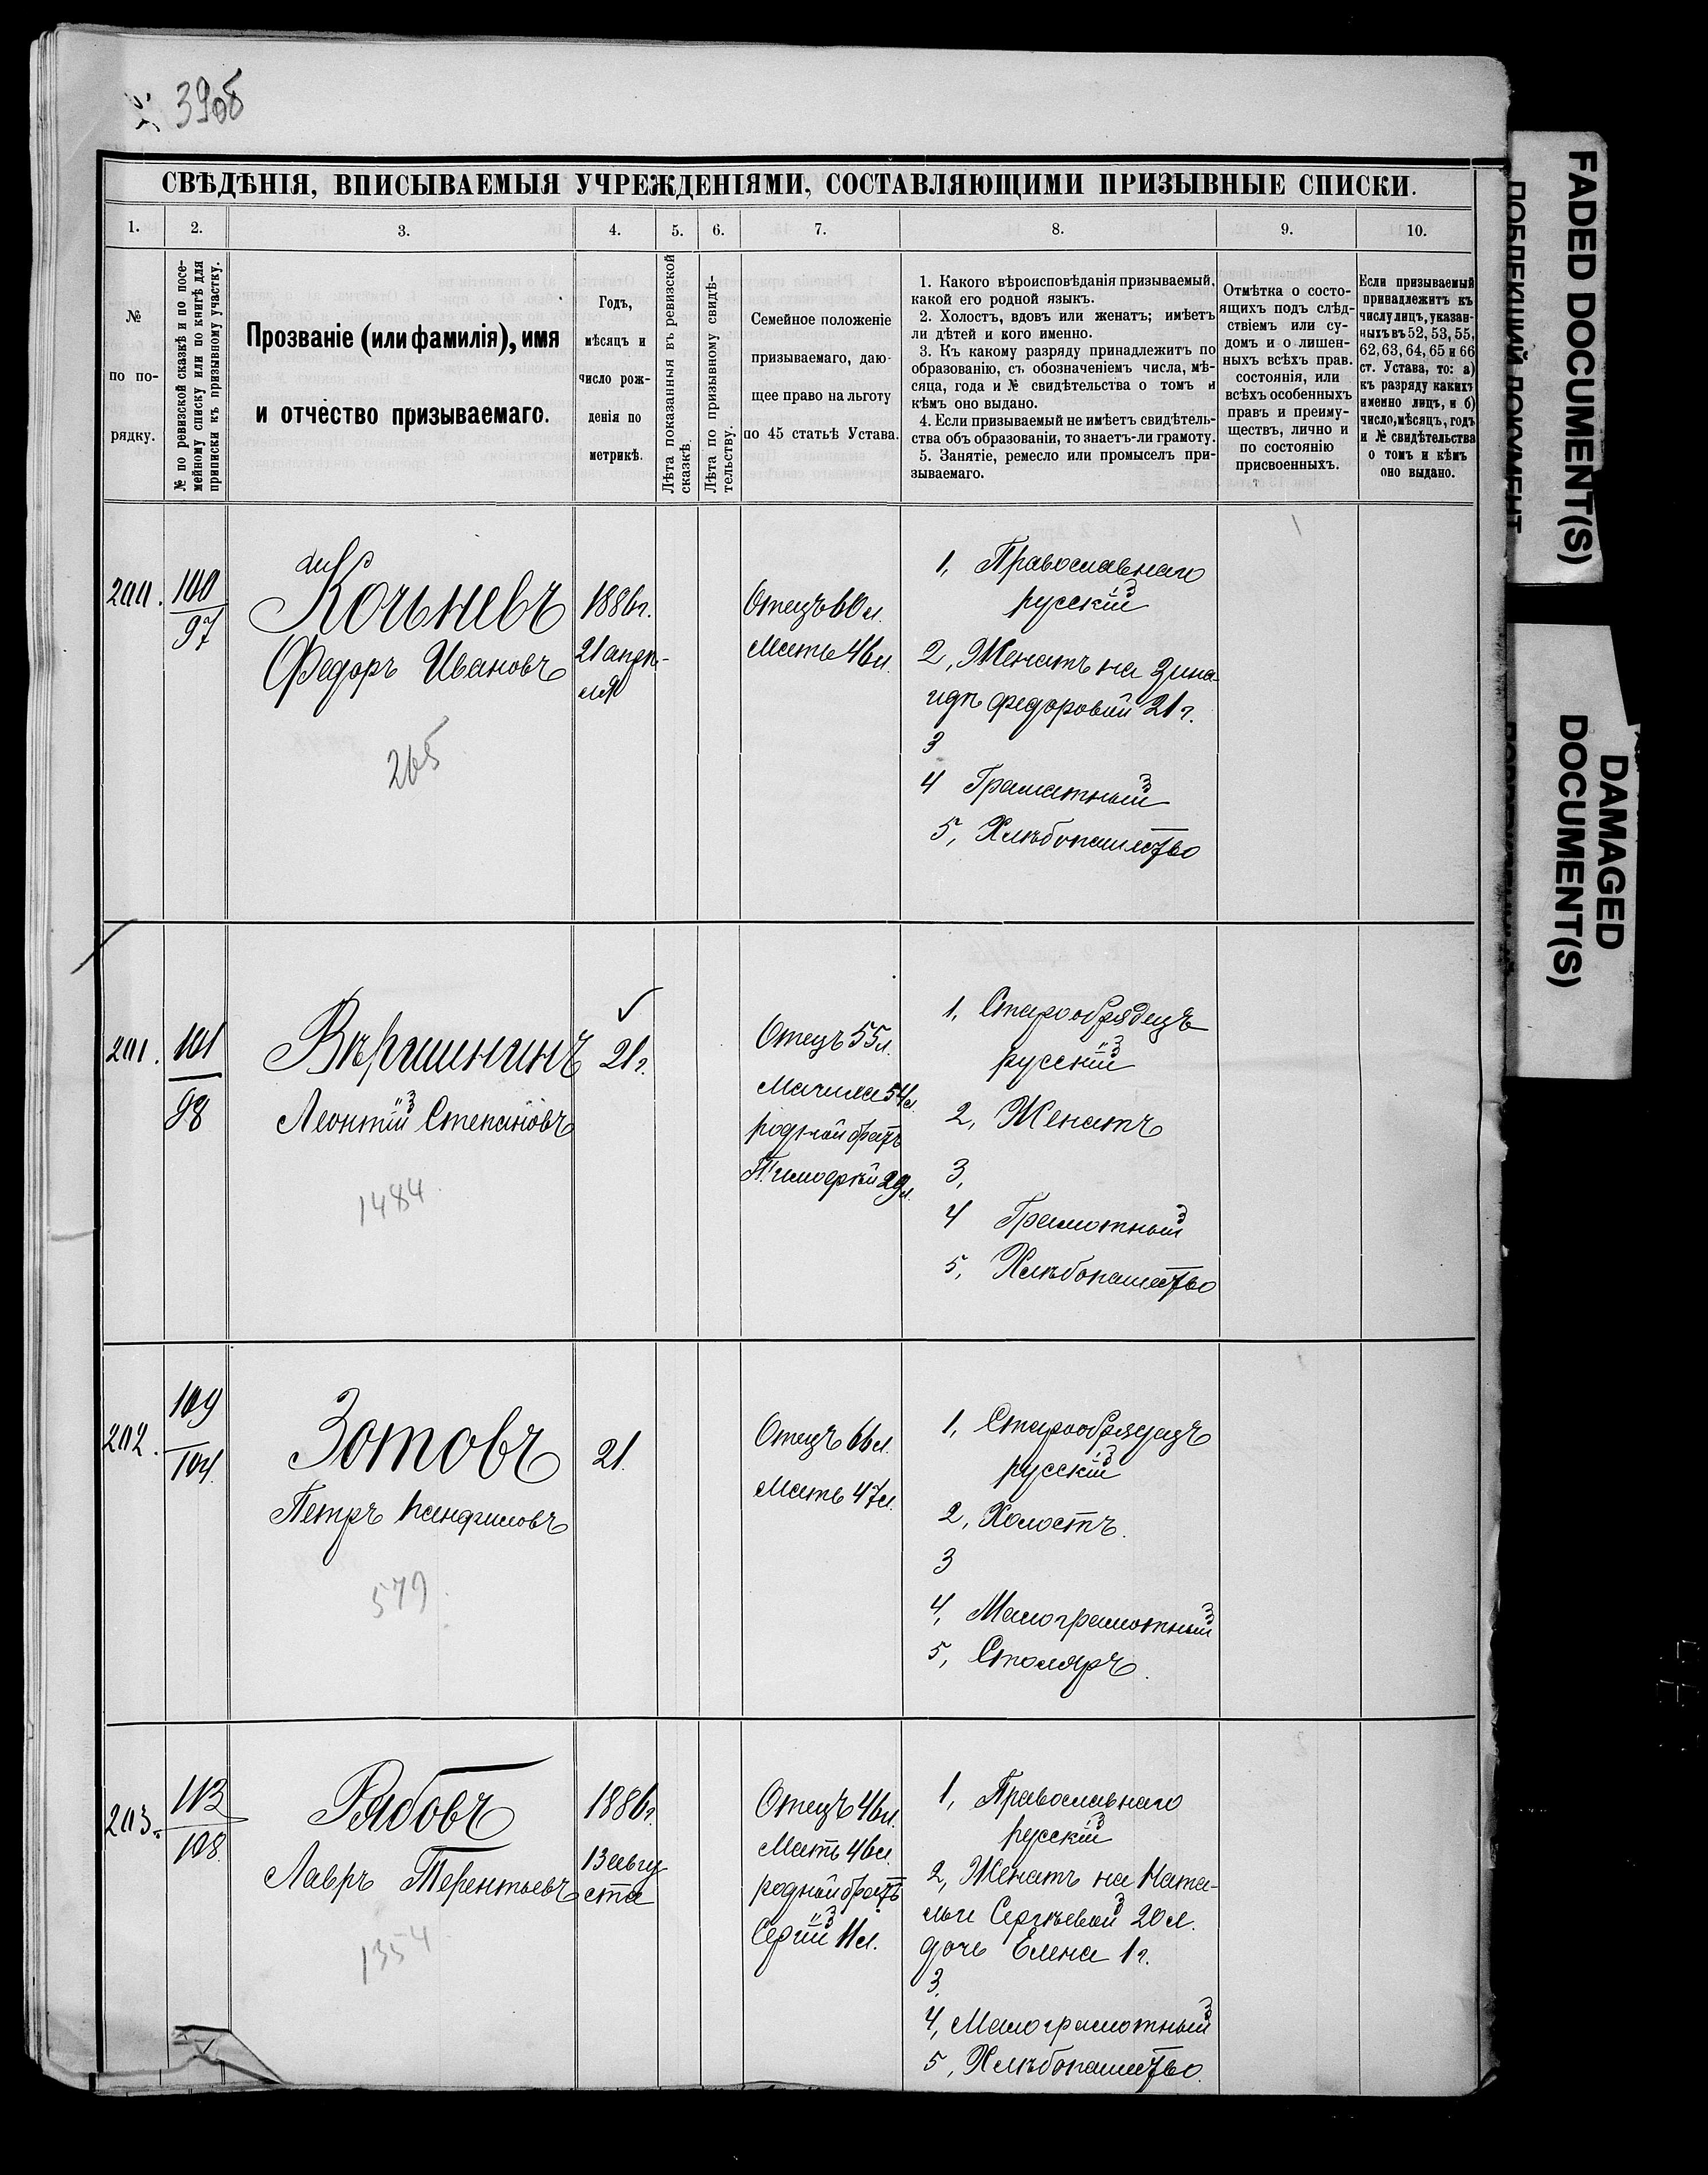 390б
СВѢДѢНІЯ, ВПИСЫВАЕМЫЯ УЧРЕЖДЕНІЯМИ, СОСТАВЛЯЮЩИМИ ПРИЗЫВНЫЕ СПИСКИ.
1. 2. 3. 4. 5. 6. 7. 8. 9. 10.
№
по по-
рядку.
№ по ревизской сказкѣ и по посе-
мейному списку или по книгѣ для
приписки къ призывному участку.
Прозваніе (или фамилія), имя
и отчество призываемаго.
Годъ,
мѣсяцъ и
число рож-
денія по
метрикѣ.
Лѣта показанныя въ ревизской
сказкѣ.
Лѣта по призывному свидѣ-
тельству.
Семейное положеніе
призываемаго, даю-
щее право на льготу
по 45 статьѣ Устава.
1. Какого вѣроисповѣданія призываемый,
какой его родной языкъ.
2. Холостъ, вдовъ или женатъ; имѣетъ
ли дѣтей и кого именно.
3. Къ какому разряду принадлежитъ по
образованію, съ обозначеніемъ числа, мѣ-
сяца, года и № свидѣтельства о томъ и
кѣмъ оно выдано.
4. Если призываемый не имѣетъ свидѣтель-
ства объ образованіи, то знаетъ-ли грамоту.
5. Занятіе, ремесло или промыселъ при-
зываемаго.
Отмѣтка о состо-
ящихъ подъ слѣд-
ствіемъ или су-
домъ и о лишен-
ныхъ всѣхъ прав.
состоянія, или
всѣхъ особенныхъ
правъ и преиму-
ществъ, лично и
по состоянію
присвоенныхъ.
Если призываемый
принадлежитъ къ
числу лицъ, указан-
ныхъ въ 52, 53, 55,
62, 63, 64, 65 и 66
ст. Устава, то: а)
къ разряду какихъ
именно лицъ, и б)
число, мѣсяцъ, годъ
и № свидѣтельства
о томъ и кѣмъ
оно выдано.
200.
100
97
Кочьневъ
Федоръ Ивановъ
265
1886г.
21 апрѣ-
ля
Отецъ 60 л.
Мать 46 л.
1, Православнаго
русскій
2, Женатъ на Зина-
идѣ Федоровой 21 г.
3
4 Граматный
5, Хлѣбопашество
201.
101
98
Вѣршининъ
Леонтій Степановъ
1484
21 г.
Отецъ 55 л.
Мачиха 54 л.
родной братъ
Тимофѣй 29 л.
1, Старообрядецъ
русскій
2, Женатъ
3,
4 Грамотный
5, Хлѣбопашество
202.
109
104
Зотовъ
Петръ Панфиловъ
579
21.
Отецъ 66 л.
Мать 47 л.
1, Старообрядецъ
русскій
2, Холостъ.
3
4, Малограмотный
5, Столяръ.
203.
113
108
Рябовъ
Лавръ Терентьевъ
1354
1886г.
13 авгу
ста
Отецъ 46 л.
Мать 46 л.
родной братъ
Сергій 11 л.
1, Православнаго
русскій
2, Женатъ на Ната-
льи Сергѣевой 20 л.
дочь Елена 1 г.
3,
4, Малограмотный
5, Хлѣбопашество.
FADED DOCUMENT(S)
ПОБЛЕКШИЙ ДОКУМЕНТ
DAMAGED
DOCUMENT(S)